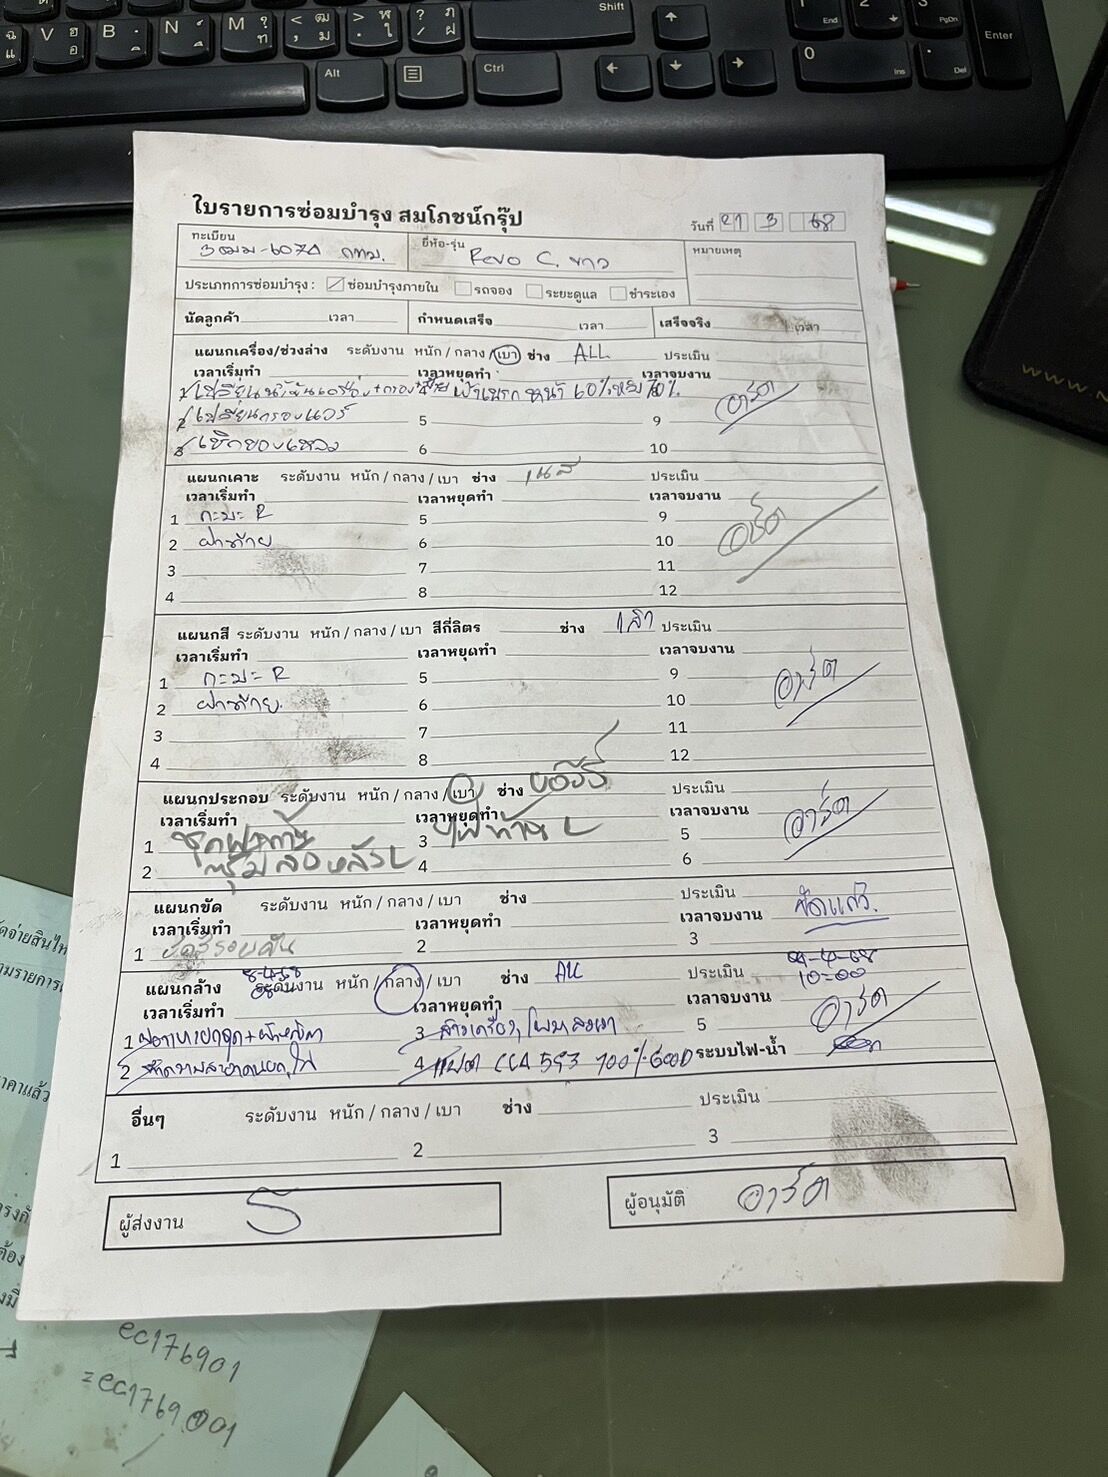 Shift
End
PgDn
Enter
Alt
Ctrl
0
Ins
Del
V
B
N
M
ใบรายการซ่อมบำรุง สมโภชน์กรุ๊ป
วันที่ 21 3 68
ทะเบียน
ยี่ห้อ-รุ่น
หมายเหตุ
กทม.
Revo C. ขาว
ประเภทการซ่อมบำรุง : ซ่อมบำรุงภายใน รถจอง ระยะดูแล ชำระเอง
นัดลูกค้า เวลา กำหนดเสร็จ เวลา เสร็จจริง เวลา
แผนกเครื่อง/ช่วงล่าง ระดับงาน หนัก / กลาง / เบา ช่าง ALL ประเมิน
เวลาเริ่มทำ เวลาหยุดทำ เวลาจบงาน
1 เปลี่ยนน้ำมันเครื่อง+กรอง ผ้าเบรกหน้า 60% หลัง 70%
2 เปลี่ยนกรองแอร์ 5 9 อาร์ต
3 เช็กของเหลว 6 10
แผนกเคาะ ระดับงาน หนัก / กลาง / เบา ช่าง ประเมิน
เวลาเริ่มทำ เวลาหยุดทำ เวลาจบงาน
1 กะบะ R 5 9
2 ฝาท้าย 6 10 อาร์ต
3 7 11
4 8 12
แผนกสี ระดับงาน หนัก / กลาง / เบา สีกี่ลิตร ช่าง ประเมิน
เวลาเริ่มทำ เวลาหยุดทำ เวลาจบงาน
1 กะบะ R 5 9
2 ฝาท้าย. 6 10 อาร์ต
3 7 11
4 8 12
แผนกประกอบ ระดับงาน หนัก / กลาง / เบา ช่าง ประเมิน
เวลาเริ่มทำ เวลาหยุดทำ เวลาจบงาน
1 ชุดฝาท้าย 3 ไฟท้าย L 5 อาร์ต
2 ซุ้มล้อหลัง L 4 6
แผนกขัด ระดับงาน หนัก / กลาง / เบา ช่าง ประเมิน
เวลาเริ่มทำ เวลาหยุดทำ เวลาจบงาน
1 ขัดสีรอบคัน 2 3
แผนกล้าง ระดับงาน หนัก / กลาง / เบา ช่าง ALL ประเมิน
10:00
เวลาเริ่มทำ เวลาหยุดทำ เวลาจบงาน
1 3 5 อาร์ต
2 4 แบต CCA 593 100% GOOD ระบบไฟ-น้ำ
อื่นๆ ระดับงาน หนัก / กลาง / เบา ช่าง ประเมิน
1 2 3
ผู้ส่งงาน
ผู้อนุมัติ อาร์ต
ec176901
=ec1769001